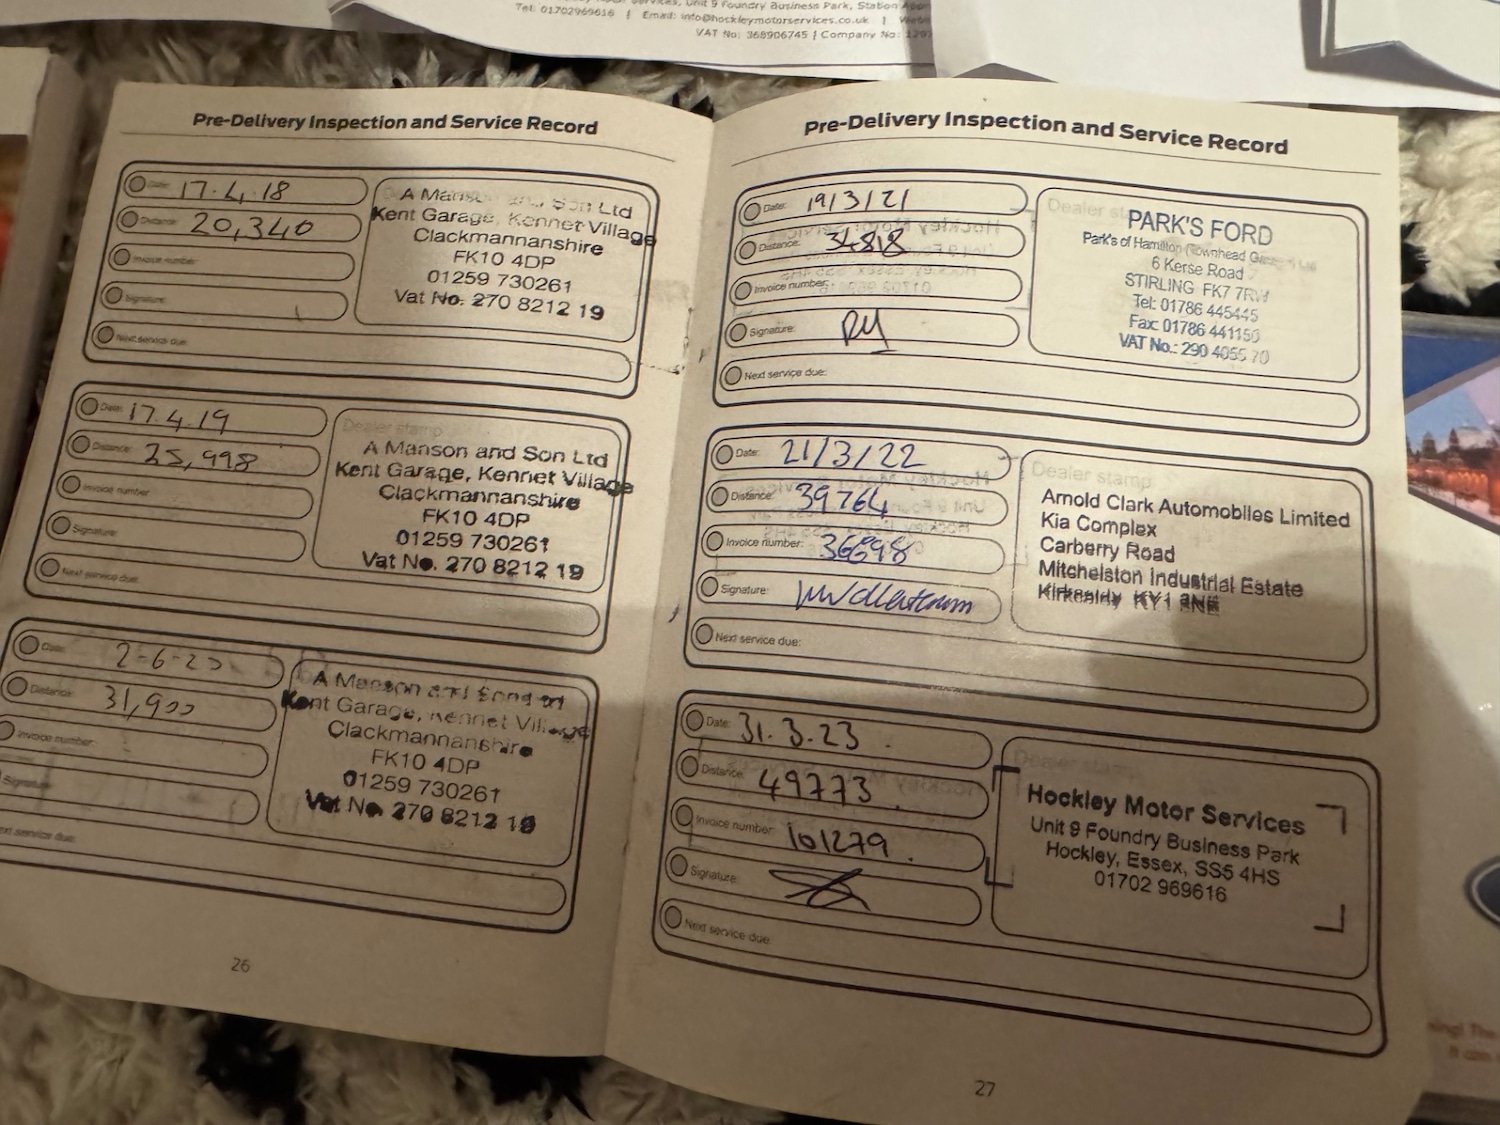 Unit 9 Foundry Business Park, Station
Tel: 01702969616 | Email: info@hockleymotorservices.co.uk |
VAT No: 368906745 | Company No:
Pre-Delivery Inspection and Service Record
Date: 17.4.18
Distance: 20,340
Invoice number:
Signature:
Next service due:
A Manson and Son Ltd
Kent Garage, Kennet Village
Clackmannanshire
FK10 4DP
01259 730261
Vat No. 270 8212 19
Date: 17.4.19
Distance: 25,998
Invoice number:
Signature:
Next service due:
Dealer stamp
A Manson and Son Ltd
Kent Garage, Kennet Village
Clackmannanshire
FK10 4DP
01259 730261
Vat No. 270 8212 19
Date: 2-6-20
Distance: 31,900
Invoice number:
Signature:
Next service due:
A Manson and Son Ltd
Kent Garage, Kennet Village
Clackmannanshire
FK10 4DP
01259 730261
Vat No. 270 8212 19
26
Pre-Delivery Inspection and Service Record
Date: 19/3/21
Distance: 34818
Invoice number:
Signature:
Next service due:
Dealer stamp
PARK'S FORD
Park's of Hamilton (Townhead Ltd
6 Kerse Road
STIRLING FK7 7RW
Tel: 01786 445445
Fax: 01786 441150
VAT No.: 290 4055 70
Date: 21/3/22
Distance: 39764
Invoice number: 36698
Signature:
Next service due:
Dealer stamp
Arnold Clark Automobiles Limited
Kia Complex
Carberry Road
Mitchelston Industrial Estate
Kirkcaldy KY1 3NE
Date: 31.3.23
Distance: 49773
Invoice number: 101279
Signature:
Next service due:
Dealer stamp
Hockley Motor Services
Unit 9 Foundry Business Park
Hockley, Essex, SS5 4HS
01702 969616
27